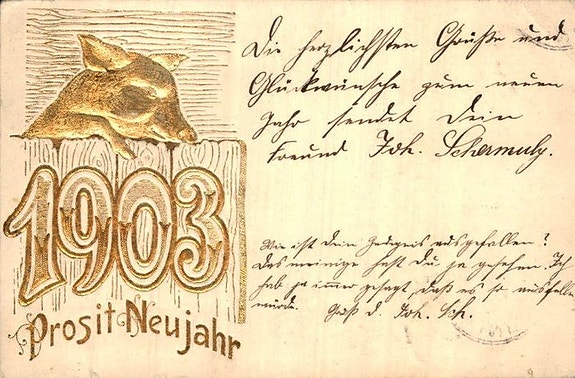 Die herzlichsten Grüße und
Glückwünsche zum neuen
Jahr sendet Dein
Freund Joh. Schermuly.
1903
Prosit Neujahr
Wie ist dein Zeugnis ausgefallen?
Das meinige hast Du ja gesehen. Ich
hab ja immer gesagt, daß es so ausfallen
würde. Gruß d. Joh. Sch.